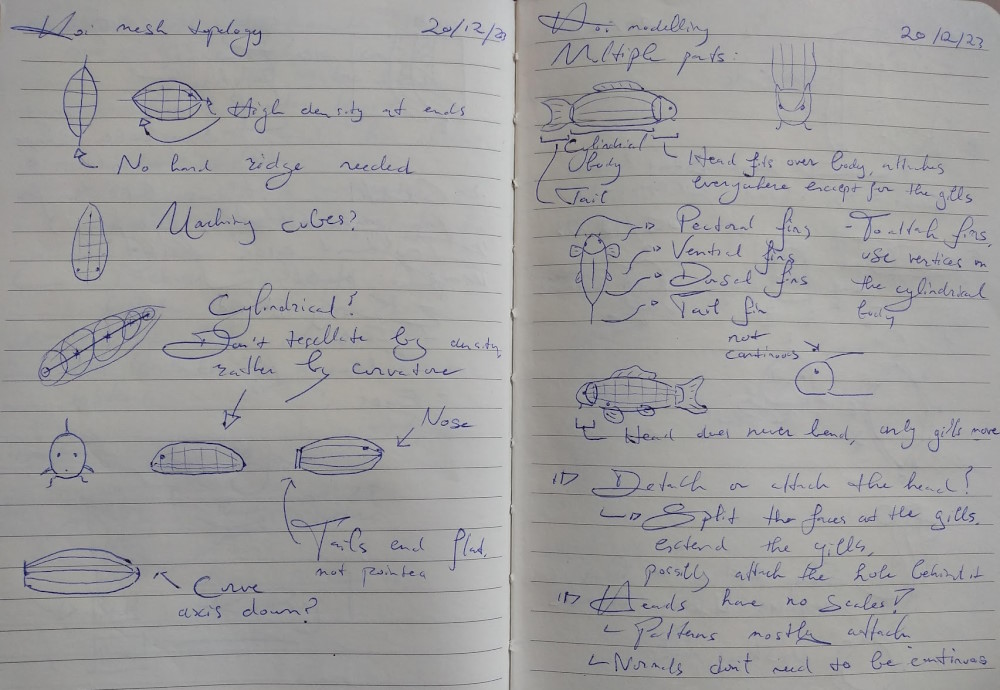 Koi mesh topology 20/12/23
High density at ends
No hard ridge needed
Marching cubes?
Cylindrical?
Don't tessellate by density,
rather by curvature
Nose
Tails end flat,
not pointed
Curve
axis down?
Koi modelling 20/12/23
Multiple parts:
Cylindrical
body
Tail
Head fits over body, attaches
everywhere except for the gills
Pectoral fins
Ventral fins
Dorsal fins
Tail fin
- To attach fins,
use vertices on
the cylindrical
body
not
continuous
Head does never bend, only gills move
Detach or attach the head?
Split the faces at the gills,
extend the gills,
possibly attach the hole behind it
Heads have no scales?
Patterns mostly attach
Normals don't need to be continuos